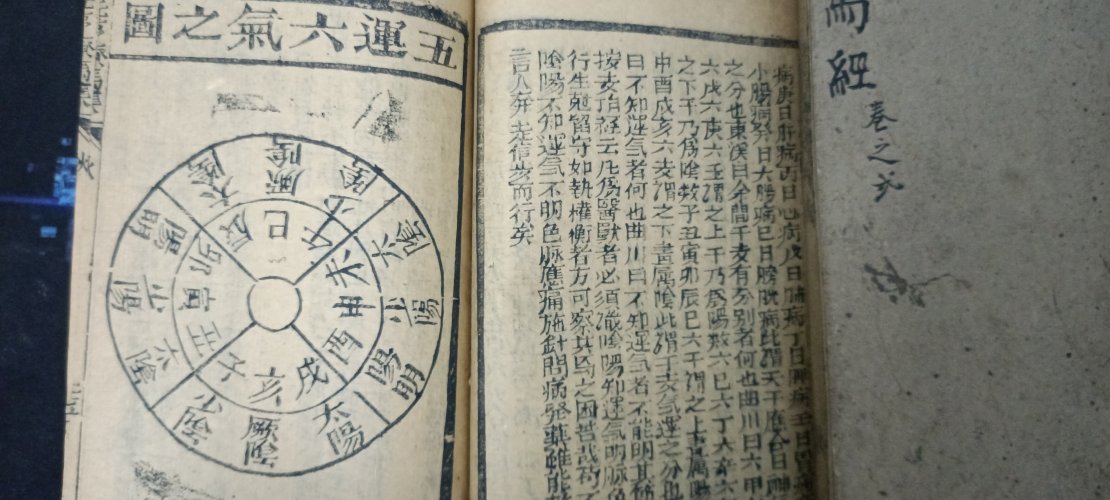 經
卷之弍
病庚日肝病丙日心病戊日肺病丁日脾病壬日胃
小腸病癸日大腸病巳日膀胱病此謂天干應合日脾
之分也東溪曰分間干支有分别者何也曲川曰六甲
六戊六庚六壬謂之上干乃為陽数六巳六丁六辛六
之下干乃為陰数子丑寅卯辰巳六干謂之上皆属陽
申酉戌亥六支謂之下皆属陰此謂干支气運之分也
曰不知運气者何也曲川曰不知運气者不能明其
按支伯經云凡為醫獸者必須識陰陽知運气明脉色
行生尅留守如執權衡者方可察其馬之困苦哉苟不
陰陽不知運气不明色脉應痛施針問病發藥雖能
言人奔走信步而行矣
五運六氣之圖
厥陰
少陰
太陰
少陽
陽明
太陽
厥陰
少陰
太陰
少陽
陽明
太陰
巳
午
未
申
酉
戌
亥
子
丑
寅
卯
辰